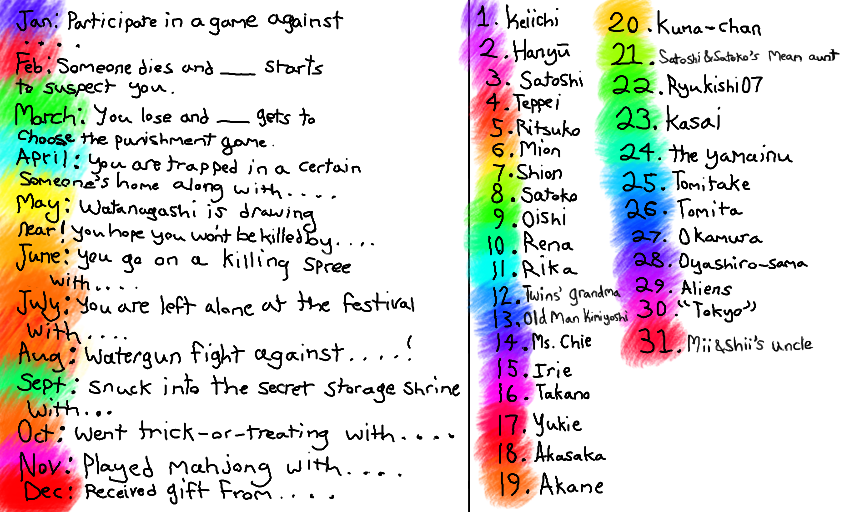 Jan: Participate in a game against
. . . .
Feb: Someone dies and ___ starts
to suspect you.
March: You lose and ___ gets to
choose the punishment game.
April: you are trapped in a certain
someone's home along with . . . .
May: Watanagashi is drawing
near! you hope you won't be killed by . . . .
June: you go on a killing spree
with . . . .
July: you are left alone at the festival
with . . . .
Aug: Watergun fight against . . . . !
Sept: snuck into the secret storage shrine
with . . .
Oct: went trick-or-treating with . . . .
Nov: Played Mahjong with . . . .
Dec: Received gift from . . . .
1. Keiichi
2. Hanyū
3. Satoshi
4. Teppei
5. Ritsuko
6. Mion
7. Shion
8. Satoko
9. Oishi
10. Rena
11. Rika
12. Twins' grandma
13. Old Man Kimiyoshi
14. Ms. Chie
15. Irie
16. Takano
17. Yukie
18. Akasaka
19. Akane
20. Kuma-chan
21. Satoshi & Satoko's Mean aunt
22. Ryukishi07
23. Kasai
24. the yamainu
25. Tomitake
26. Tomita
27. Okamura
28. Oyashiro-sama
29. Aliens
30. "Tokyo"
31. Mii & Shii's uncle